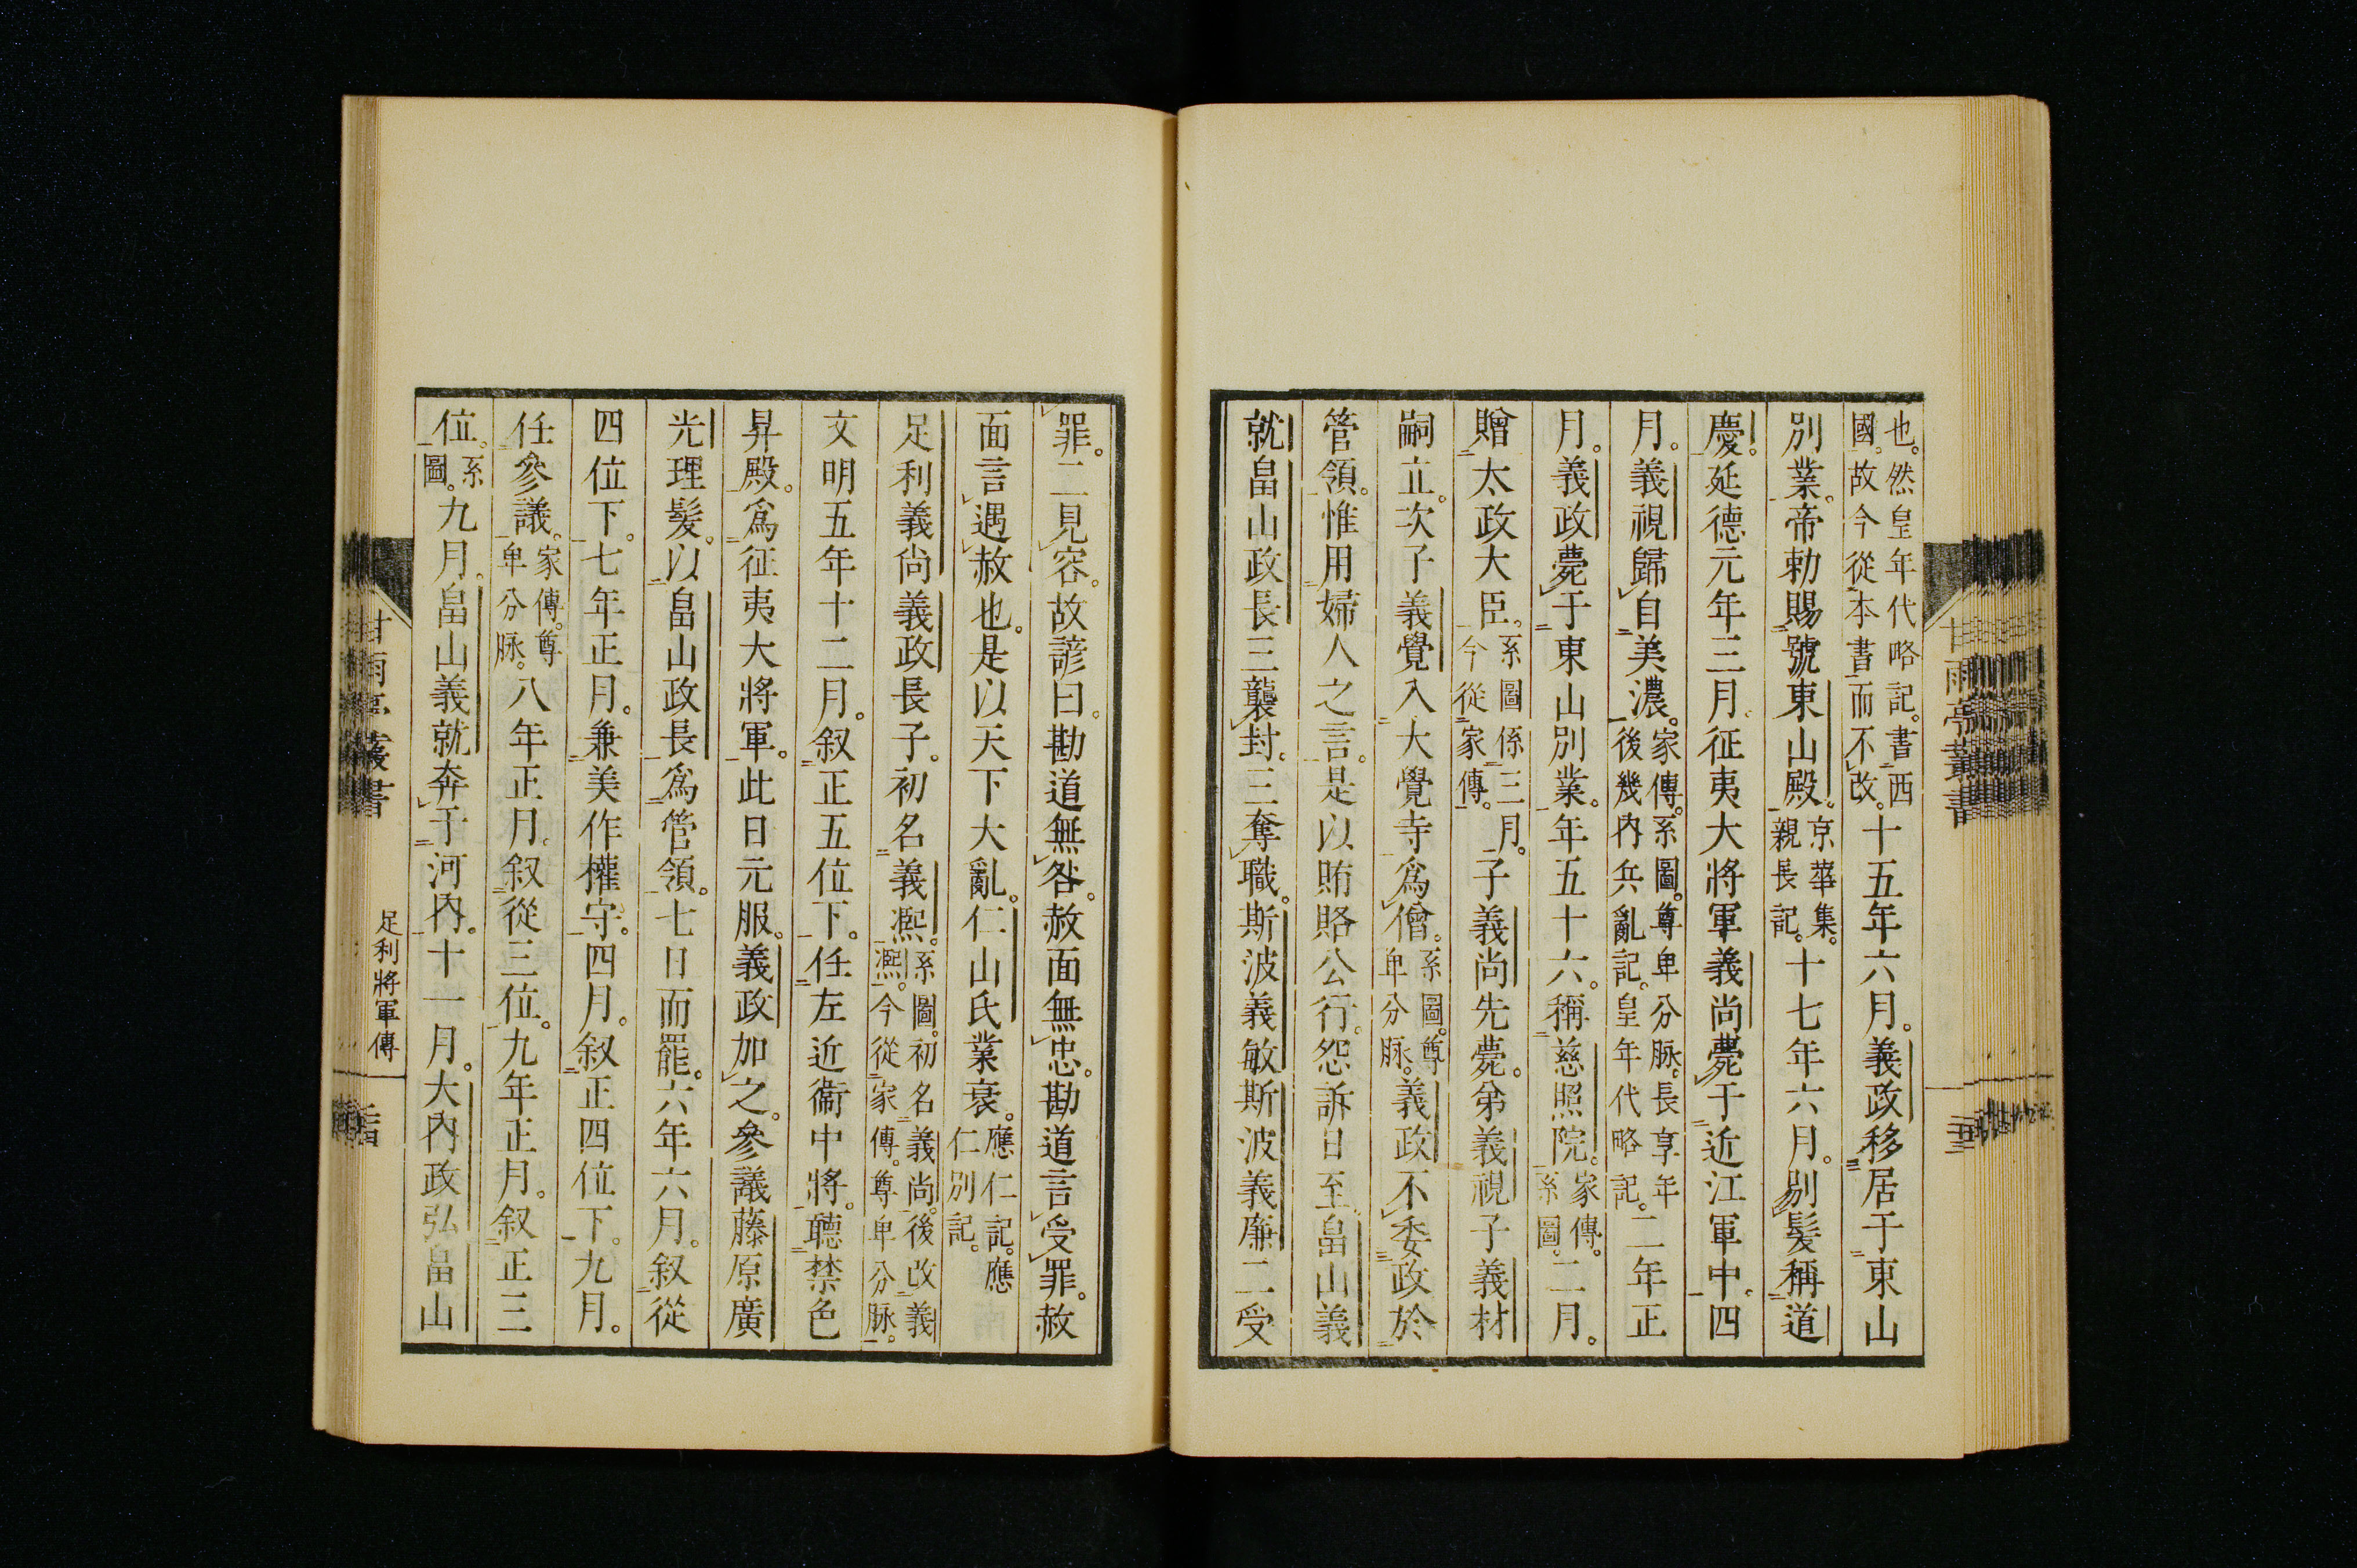 也。然皇年代略記。書西
國。故今從本書而不改。十五年六月。義政移居于東山
別業。帝勅賜號東山殿。京華集。
親長記。十七年六月。剔髮稱道
慶。延德元年三月。征夷大將軍義尚薨于近江軍中。四
月。義視歸自美濃。家傳。系圖。尊卑分脉。長享年
後畿內兵亂記。皇年代略記。二年正
月。義政薨于東山別業。年五十六。稱慈照院。家傳。
系圖。二月。
贈太政大臣。系圖係三月。
今從家傳。子義尚先薨。弟義視子義材
嗣立。次子義覺入大覺寺爲僧。系圖。尊
卑分脉。義政不委政於
管領。惟用婦人之言。是以賄賂公行。怨訴日至。畠山義
就畠山政長三襲封。三奪職。斯波義敏斯波義廉二受
罪。二見容。故諺曰。勘道無咎。赦面無忠。勘道言受罪。赦
面言遇赦也。是以天下大亂。仁山氏業衰。應仁記。應
仁別記。
足利義尚義政長子。初名義凞。系圖。初名義尚。後改義
凞。今從家傳。尊卑分脉。
文明五年十二月。叙正五位下。任左近衞中將。聽禁色
昇殿。爲征夷大將軍。此日元服。義政加之。參議藤原廣
光理髮。以畠山政長爲管領。七日而罷。六年六月。叙從
四位下。七年正月。兼美作權守。四月。叙正四位下。九月。
任參議。家傳。尊
卑分脉。八年正月。叙從三位。九年正月。叙正三
位。系
圖。九月。畠山義就奔于河內。十一月。大內政弘畠山
甘雨亭叢書
足利將軍傳
甘雨亭叢書